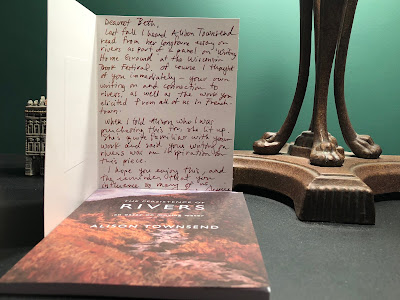 Dearest Beth,
Last fall I heard Alison Townsend
read from her longform essay on
rivers as part of a panel on "Writing
Home Ground" at the Wisconsin
Book Festival. Of course I thought
of you immediately – your own
writing on and connection to
rivers, as well as the work you
elicited from all of us in French-
town.
When I told Alison who I was
purchasing this for, she lit up.
She's quite familiar with your
work and said your writing on
rivers was an inspiration for
this piece.
I hope you enjoy this, and
the reminder that you
influence so many of us.
THE PERSISTENCE OF
RIVERS
an essay on moving water
ALISON TOWNSEND